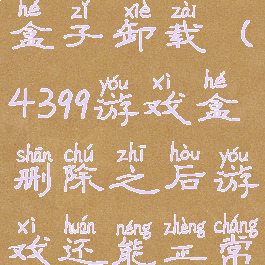 hé zǐ xiè zài
盒子卸载（
yóu xì hé
4399游戏盒
shān chú zhī hòu yóu
删除之后游
xì huán néng zhèng cháng
戏还能正常